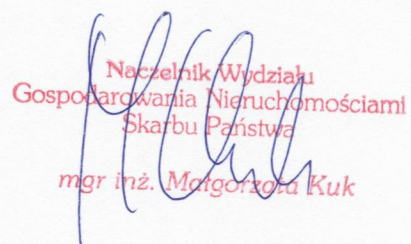 Naczelnik Wydziału
Gospodarowania Nieruchomościami
Skarbu Państwa
mgr inż. Małgorzata Kuk